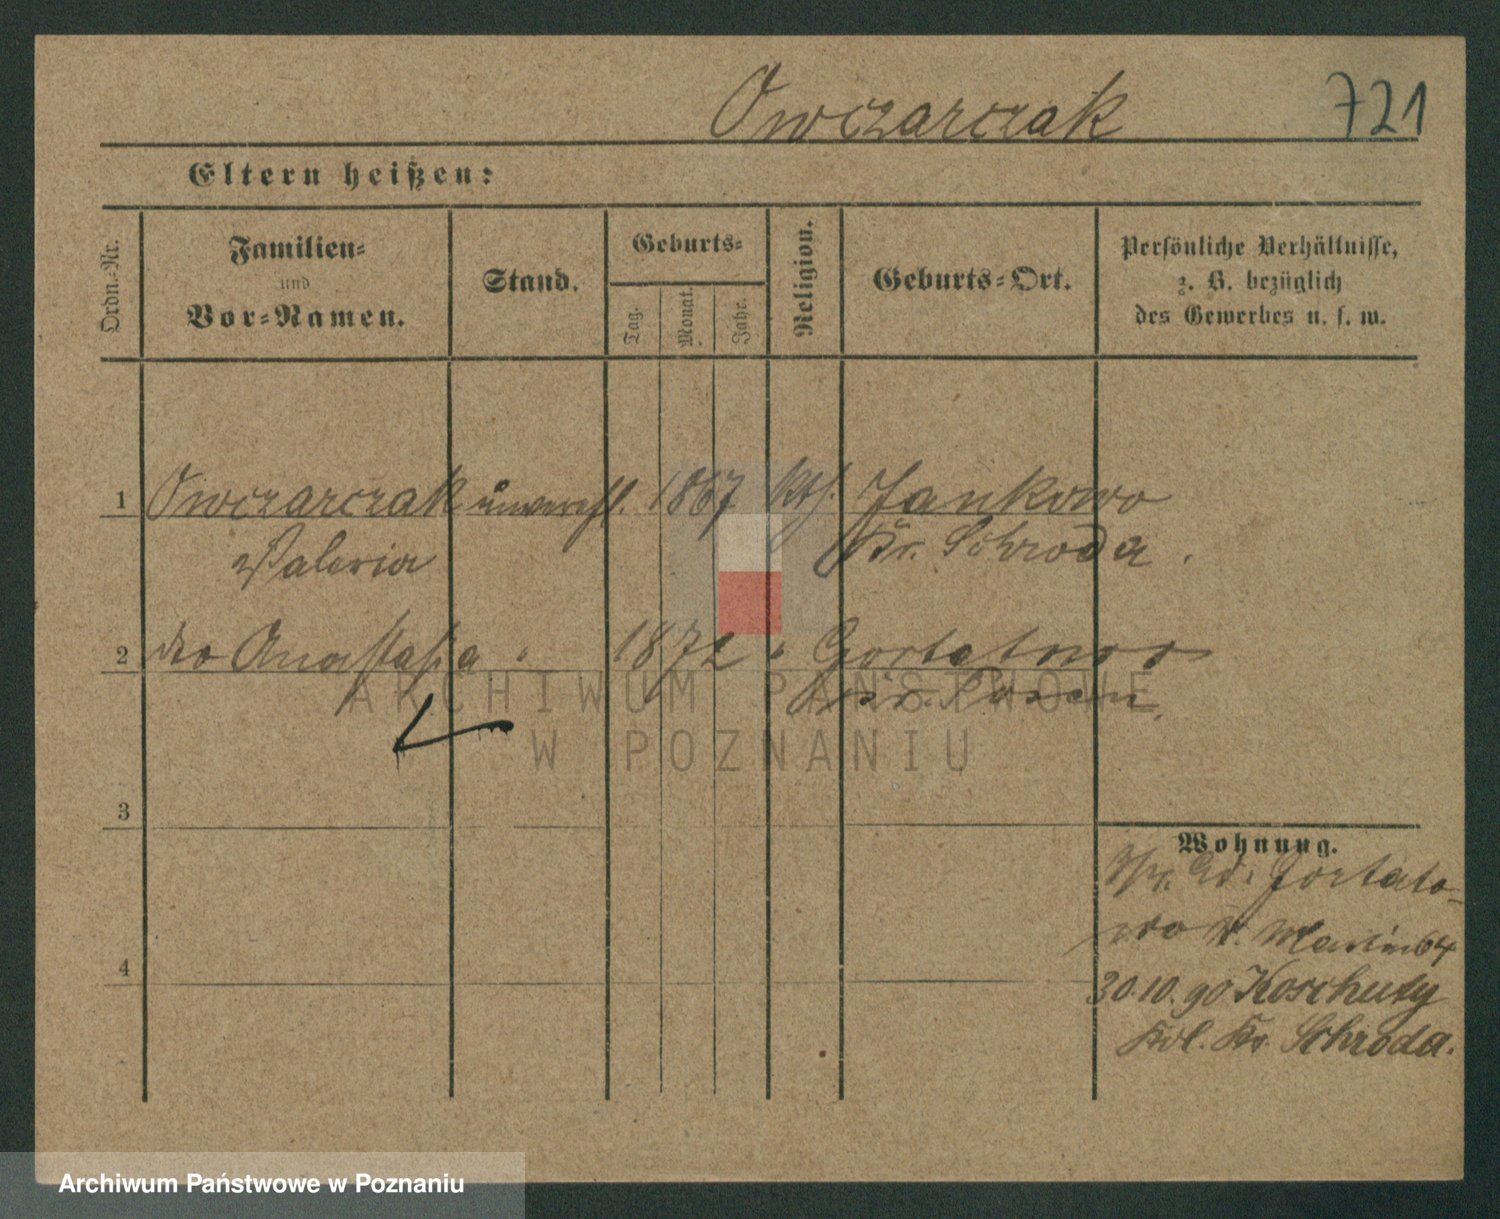 Owczarczak 721
Eltern heißen:
Ordn.-Nr.
Familien-
und
Vor-Namen.
Stand.
Geburts-
Tag.
Monat.
Jahr.
Religion.
Geburts-Ort.
Persönliche Verhältnisse,
z. B. bezüglich
des Gewerbes u. s. w.
1 Owczarczak unverehl. 1867 kth. Jankowo
Valeria Kr. Schroda.
2 dto Anastasia " 1872 " Gortatowo
Kr. Posen.
3
4
Wohnung.
Gortato-
wo St. Martin 64
30.10.90 Koschuty
Kr. Schroda.
ARCHIWUM PAŃSTWOWE
W POZNANIU
Archiwum Państwowe w Poznaniu